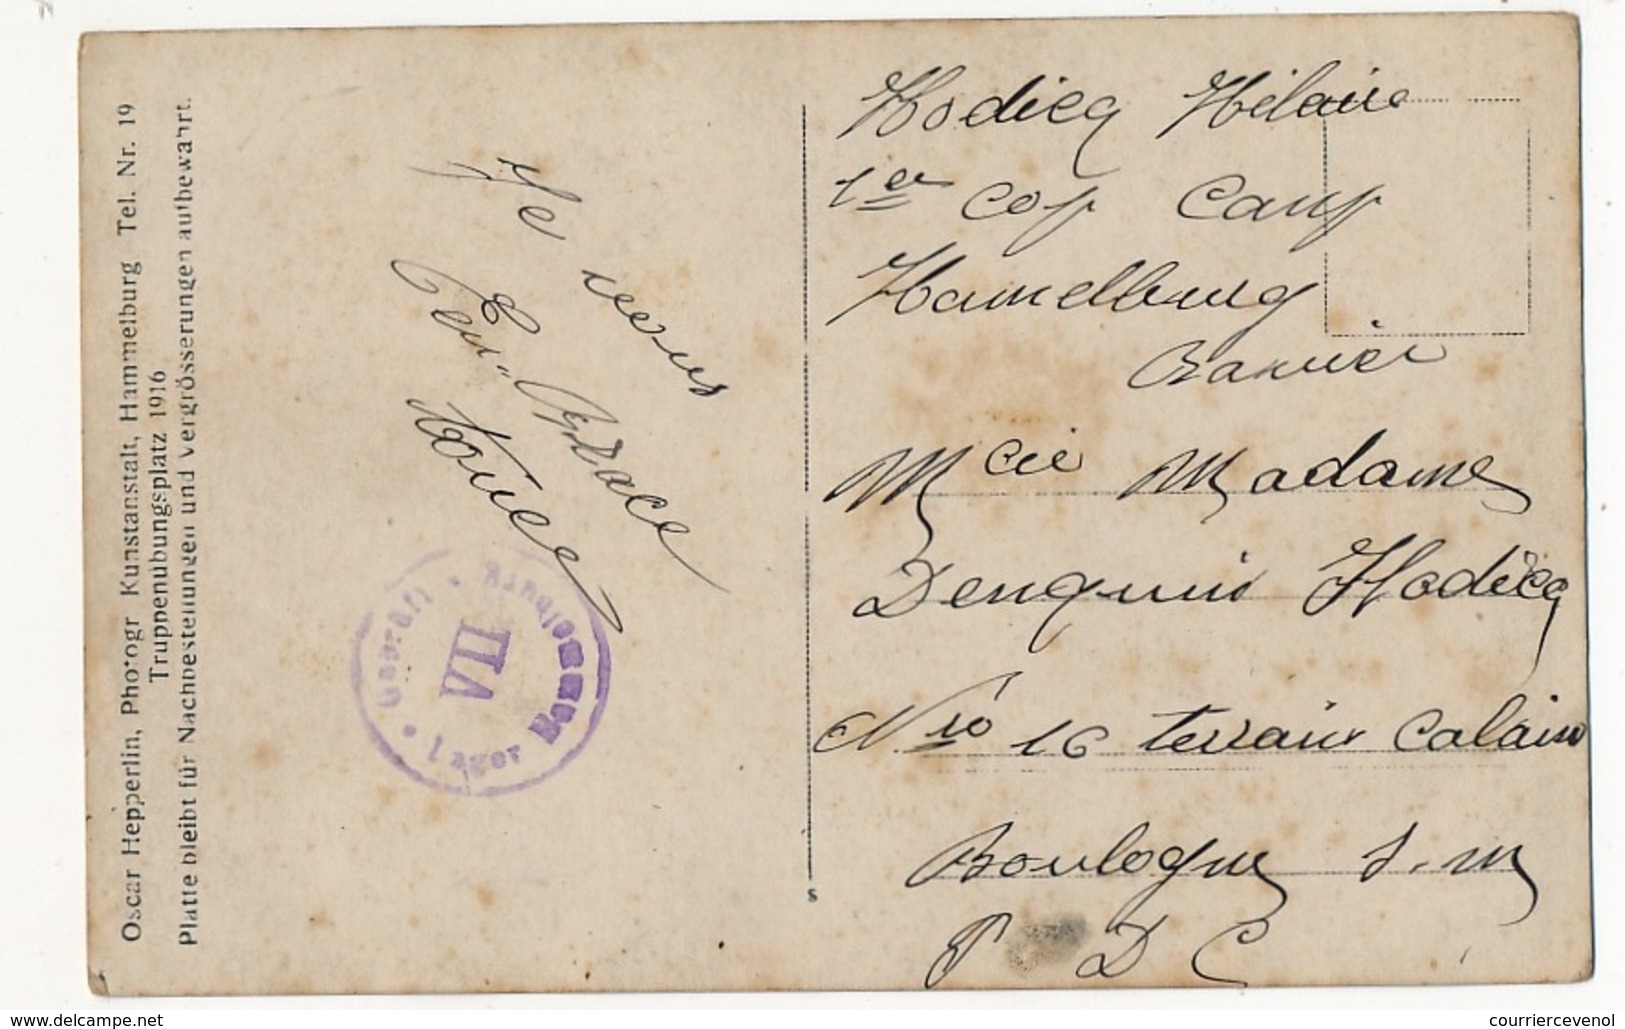 Oscar Hepperlin, Photogr Kunstanstalt, Hammelburg Tel. Nr. 19
Truppenübungsplatz 1916
Platte bleibt für Nachbestellungen und Vergrösserungen aufbewahrt.
Je vous
Embrace
tous
Geprüft
VII
Lager Hammelburg
Hodicq Hilaire
1er cop Camp
Hamelburg
Bavier
Madame
Denquin Hodicq
Nro 16 terain Calain
Boulogne s.m
P D C
s
www.delcampe.net
courriercevenol